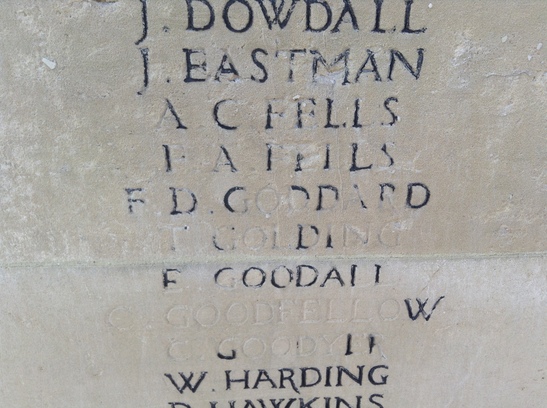 J. DOWDALL
J. EASTMAN
A C FELLS
F A FELLS
F. D. GODDARD
GOLDING
E GOODALL
GOODFELLOW
W. HARDING
HAWKINS